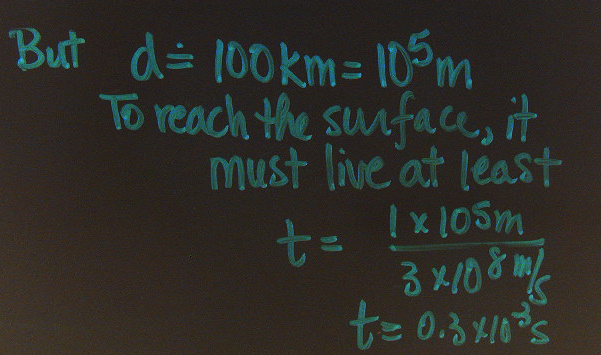 But d ≐ 100km = 10⁵m
To reach the surface, it
must live at least
t = 1 x 105m
3 x 10⁸ m/s
t = 0.3 x 10⁻³s